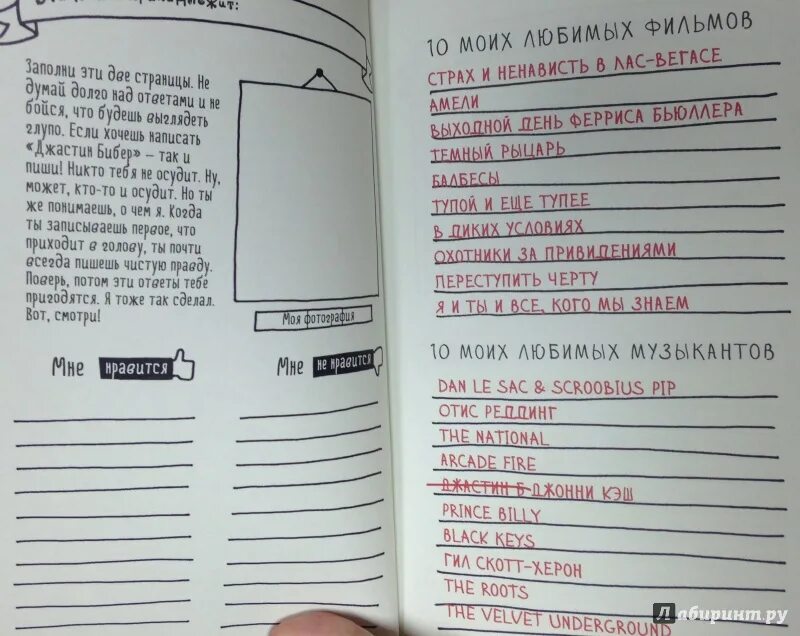 Заполни эти две страницы. Не
думай долго над ответами и не
бойся, что будешь выглядеть
глупо. Если хочешь написать
«Джастин Бибер» – так и
пиши! Никто тебя не осудит. Ну,
может, кто-то и осудит. Но ты
же понимаешь, о чем я. Когда
ты записываешь первое, что
приходит в голову, ты почти
всегда пишешь чистую правду.
Поверь, потом эти ответы тебе
пригодятся. Я тоже так сделал.
Вот, смотри!
Моя фотография
Мне нравится
Мне не нравится
10 МОИХ ЛЮБИМЫХ ФИЛЬМОВ
СТРАХ И НЕНАВИСТЬ В ЛАС-ВЕГАСЕ
АМЕЛИ
ВЫХОДНОЙ ДЕНЬ ФЕРРИСА БЬЮЛЛЕРА
ТЕМНЫЙ РЫЦАРЬ
БАЛБЕСЫ
ТУПОЙ И ЕЩЕ ТУПЕЕ
В ДИКИХ УСЛОВИЯХ
ОХОТНИКИ ЗА ПРИВИДЕНИЯМИ
ПЕРЕСТУПИТЬ ЧЕРТУ
Я И ТЫ И ВСЕ, КОГО МЫ ЗНАЕМ
10 МОИХ ЛЮБИМЫХ МУЗЫКАНТОВ
DAN LE SAC & SCROOBIUS PIP
ОТИС РЕДДИНГ
THE NATIONAL
ARCADE FIRE
ДЖАСТИН Б ДЖОННИ КЭШ
PRINCE BILLY
BLACK KEYS
ГИЛ СКОТТ-ХЕРОН
THE ROOTS
THE VELVET UNDERGROUND
Лабиринт.ру